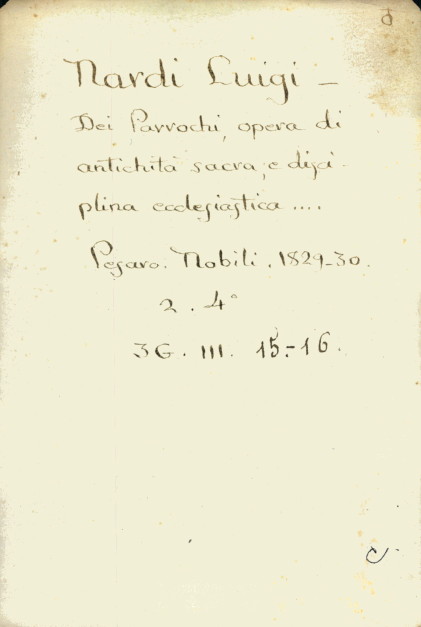 Nardi Luigi –
Dei Parrochi, opera di
antichità sacra, e disci-
plina ecclesiastica ....
Pesaro. Nobili. 1829-30.
2. 4°
3G. III. 15.-16.